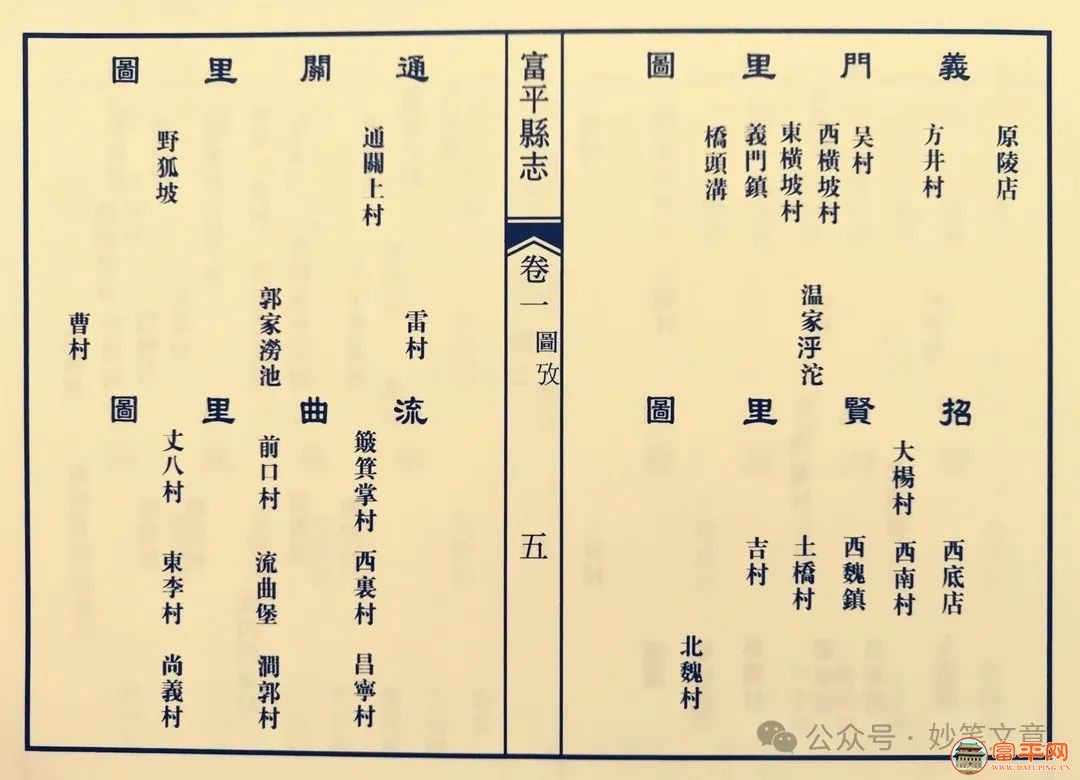 義門里圖
原陵店
方井村
吴村
西横坡村
東横坡村
義門鎮
橋頭溝
温家泘沱
招賢里圖
大楊村
西底店
西南村
西魏鎮
土橋村
吉村
北魏村
富平縣志
卷一
圖攷
五
通關里圖
通關上村
野狐坡
雷村
郭家澇池
曹村
流曲里圖
簸箕掌村
西裏村
昌寧村
前口村
流曲堡
澗郭村
丈八村
東李村
尚義村
公众号·妙笔文章
富平网
WWW.DAFUPING.CN